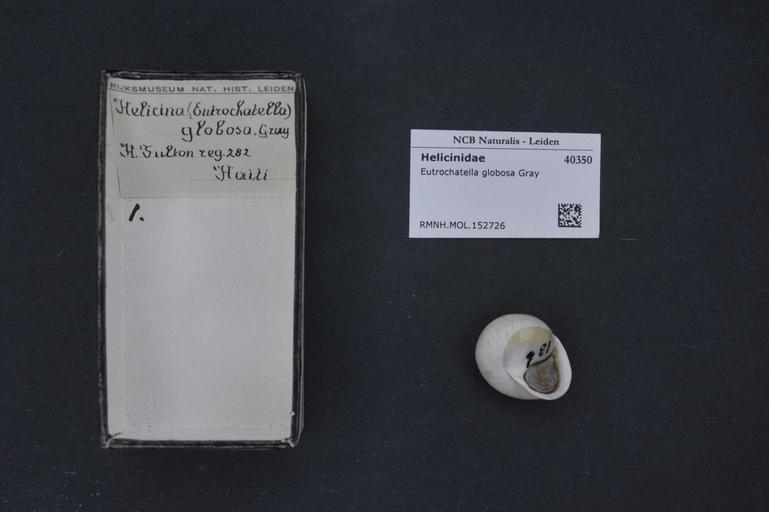 RIJKSMUSEUM NAT. HIST. LEIDEN
Helicina (Eutrochatella)
globosa, Gray
H. Fulton reg. 282
Haiti
1.
NCB Naturalis - Leiden
Helicinidae 40350
Eutrochatella globosa Gray
RMNH.MOL.152726